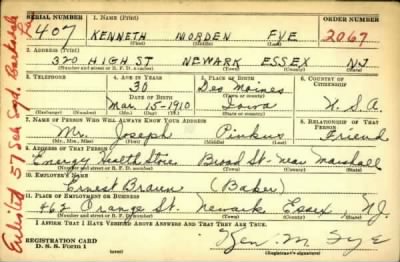 SERIAL NUMBER 1. NAME (Print) ORDER NUMBER
407 KENNETH MORDEN FYE 2067
(First) (Middle) (Last)
2. ADDRESS (Print)
320 HIGH ST NEWARK ESSEX NJ
(Number and street or R. F. D. number) (Town) (County) (State)
3. TELEPHONE 4. AGE IN YEARS 5. PLACE OF BIRTH 6. COUNTRY OF CITIZENSHIP
30 Des Moines
DATE OF BIRTH (Town or county)
Mar. 15-1910 Iowa U.S.A.
(Exchange) (Number) (Mo.) (Day) (Yr.) (State or country)
7. NAME OF PERSON WHO WILL ALWAYS KNOW YOUR ADDRESS 8. RELATIONSHIP OF THAT PERSON
Mr. Joseph Pinkus Friend
(Mr., Mrs., Miss) (First) (Middle) (Last)
9. ADDRESS OF THAT PERSON
Energy Health Store Broad St. near Marshall
(Number and street or R. F. D. number) (Town) (County) (State)
10. EMPLOYER'S NAME
Ernest Braun (Baker)
11. PLACE OF EMPLOYMENT OR BUSINESS
462 Orange St. Newark Essex N.J.
(Number and street or R. F. D. number) (Town) (County) (State)
I AFFIRM THAT I HAVE VERIFIED ABOVE ANSWERS AND THAT THEY ARE TRUE.
REGISTRATION CARD Ken. M. Fye
D. S. S. Form 1 (Registrant's signature)
Enlisted 57 Sch Sqd.